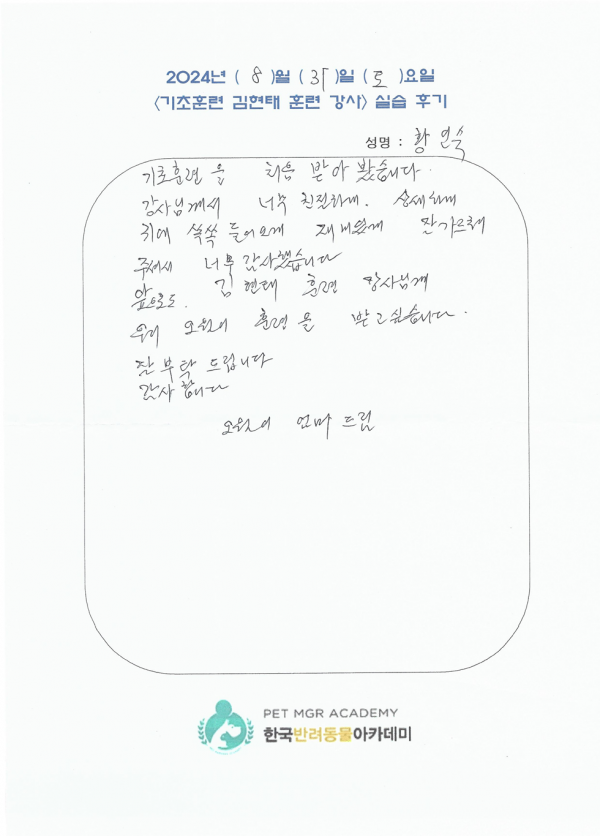 2024년 ( 8 )월 ( 31 )일 ( 토 )요일
<기초훈련 김현태 훈련 강사> 실습 후기
성명 : 황인숙
기초훈련을 처음 받아 봤습니다.
강사님께서 너무 친절하게. 상세하게
귀에 쏙쏙 들어오게 재미있게 잘 가르쳐
주셔서 너무 감사했습니다
앞으로도. 김현태 훈련 강사님께
우리 오월이 훈련을 받고싶습니다.
잘 부탁 드립니다
감사합니다
오월이 엄마 드림
PET MGR ACADEMY
한국반려동물아카데미